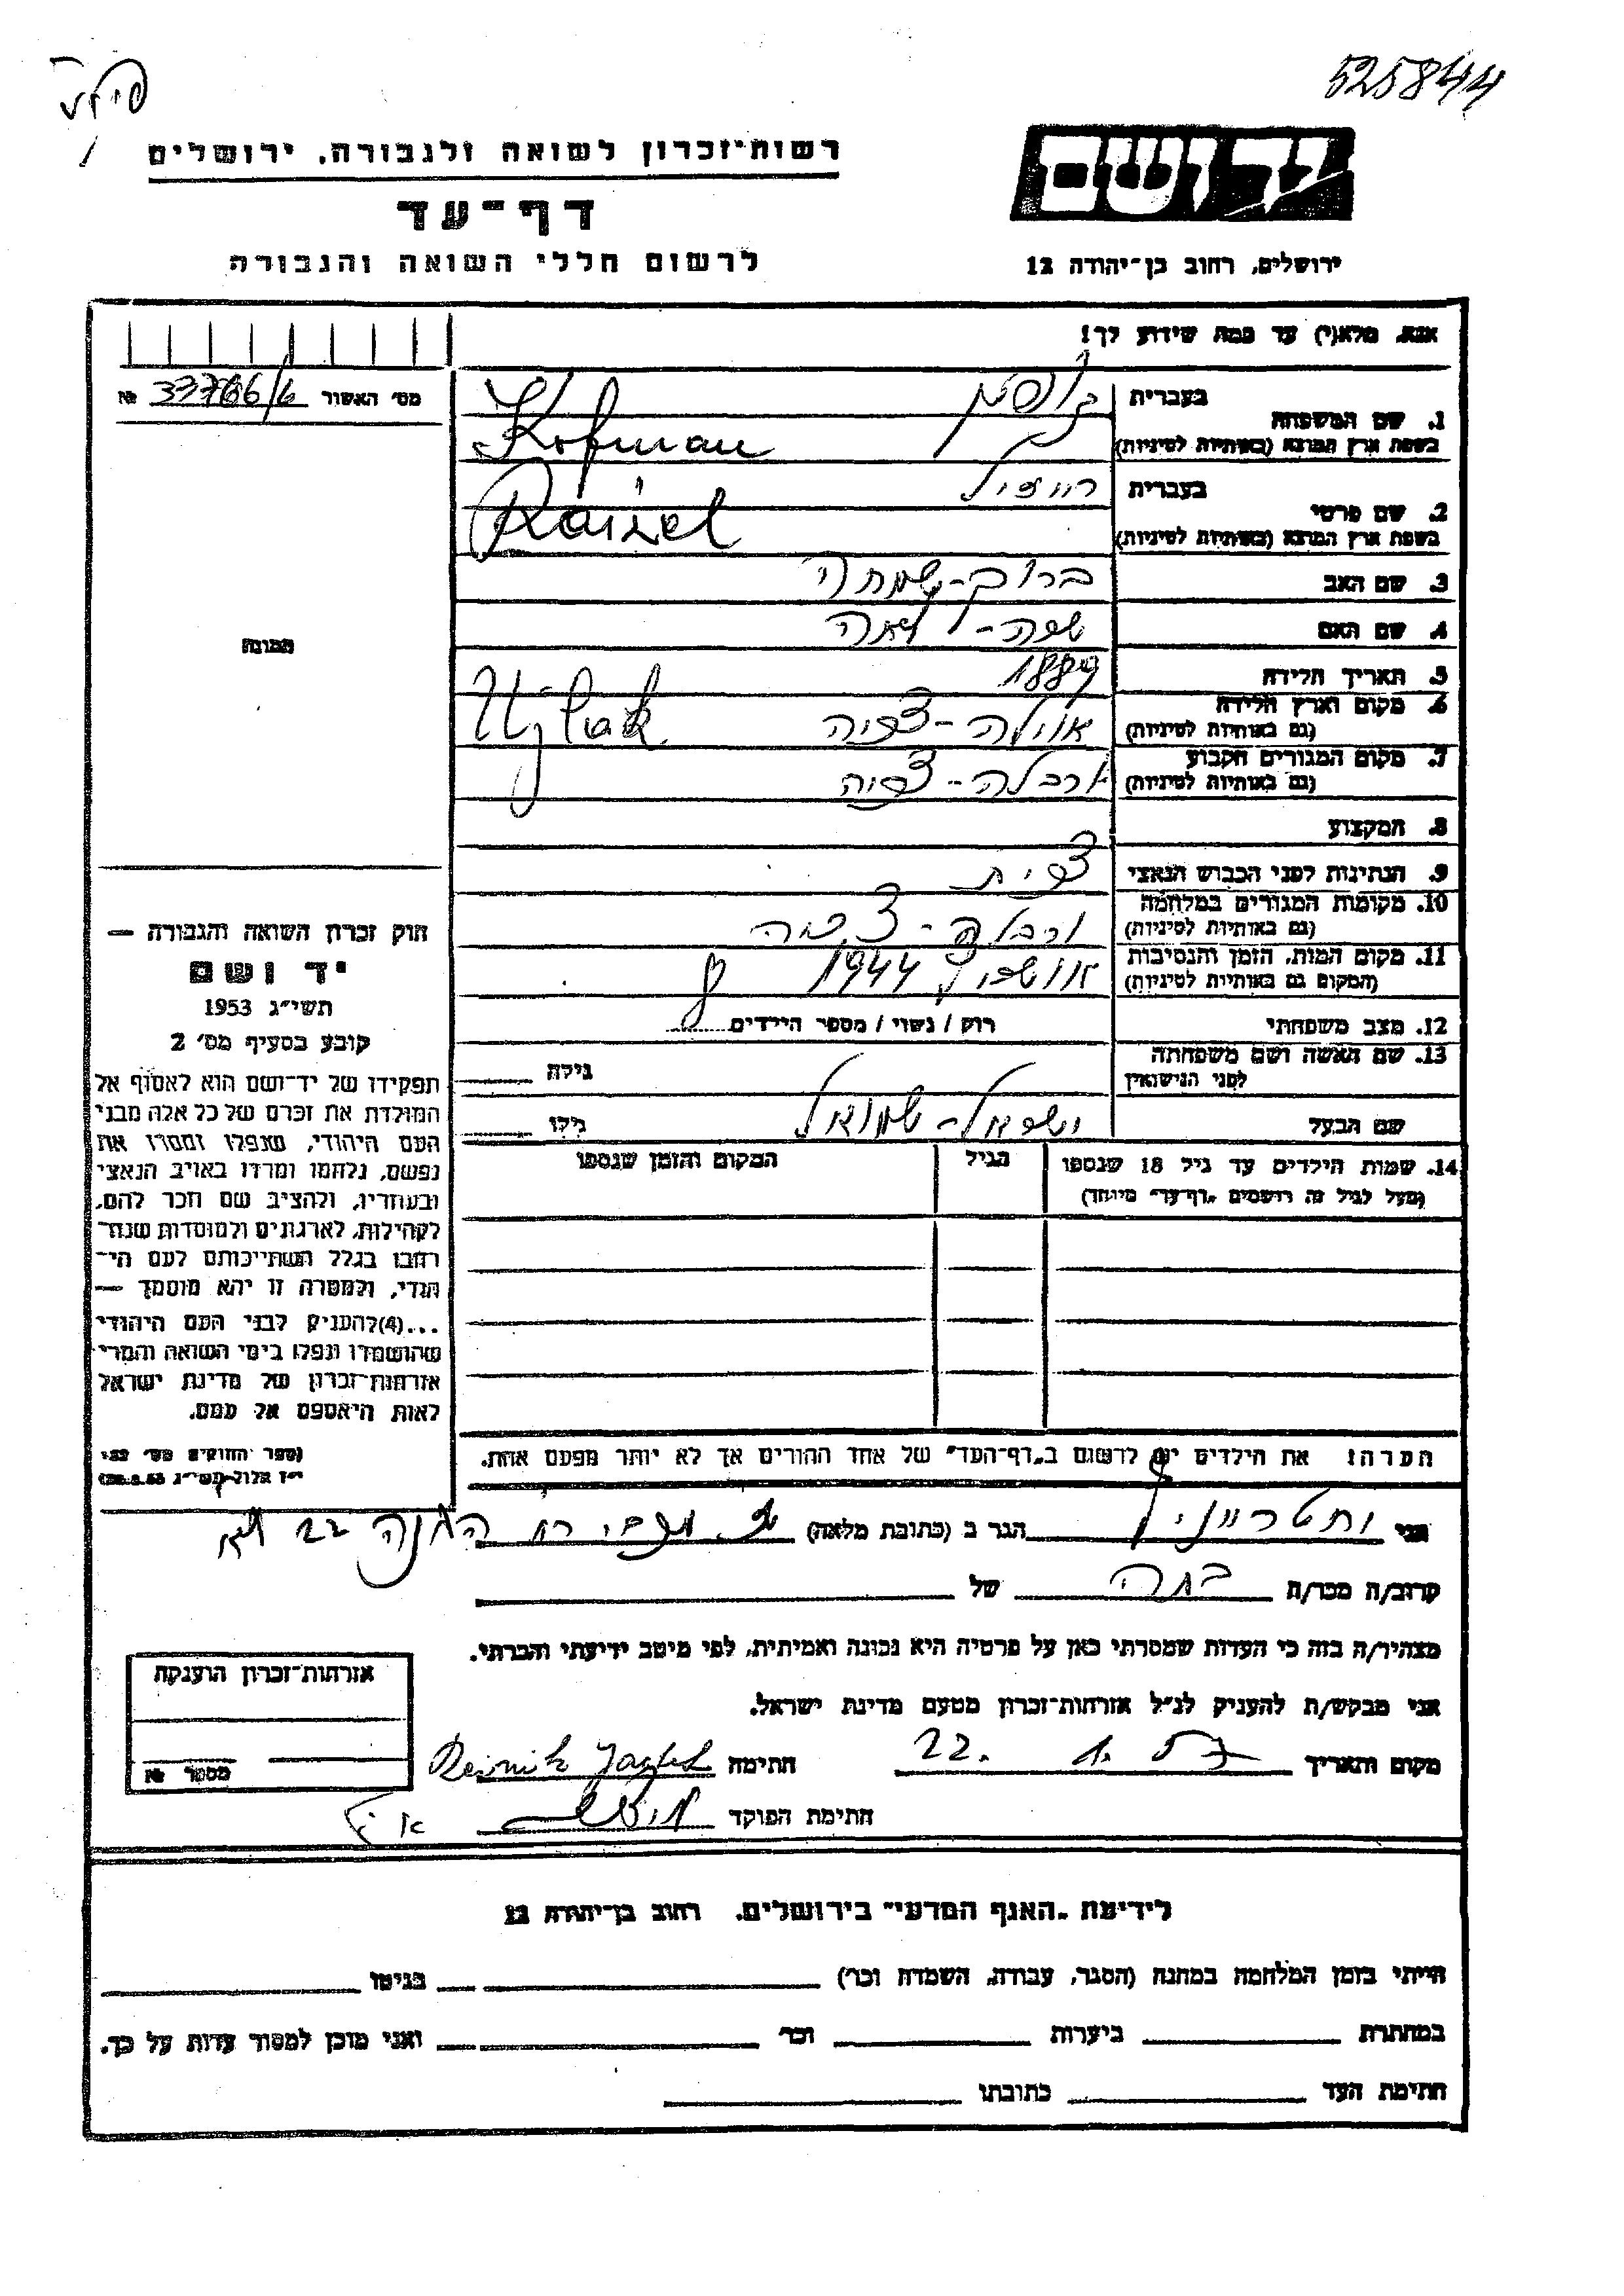 525844
רשות־זכרון לשואה ולגבורה, ירושלים
דף־עד
לרשום חללי השואה והגבורה
יד ושם
ירושלים, רחוב בן־יהודה 12
אנא, מלא(י) עד כמה שידוע לך!
מס׳ האשור № 37766/6
תמונה
1. שם המשפחה
בעברית קופמן
בשפת ארץ המוצא (באותיות לטיניות) Kofman
2. שם פרטי
בעברית רייזל
בשפת ארץ המוצא (באותיות לטיניות) Raizel
3. שם האב ברוך-שמחה
4. שם האם
5. תאריך הלידה 1889
6. מקום וארץ הלידה
(גם באותיות לטיניות) Ujlak
7. מקום המגורים הקבוע
(גם באותיות לטיניות)
8. המקצוע
9. הנתינות לפני הכבוש הנאצי צ׳כית
10. מקומות המגורים במלחמה
(גם באותיות לטיניות)
11. מקום המות, הזמן והנסיבות
(המקום גם באותיות לטיניות) 1944
12. מצב משפחתי רוק / נשוי / מספר הילדים
13. שם האשה ושם משפחתה
לפני הנישואין
גילה
שם הבעל ישראל-שמואל
גילו
14. שמות הילדים עד גיל 18 שנספו הגיל המקום והזמן שנספו
(מעל לגיל זה רושמים „דף־עד״ מיוחד)
הערה: את הילדים יש לרשום ב„דף־העד״ של אחד ההורים אך לא יותר מפעם אחת.
חוק זכרון השואה והגבורה —
יד ושם
תשי״ג 1953
קובע בסעיף מס׳ 2
תפקידו של יד־ושם הוא לאסוף אל
המולדת את זכרם של כל אלה מבני
העם היהודי, שנפלו ומסרו את
נפשם, נלחמו ומרדו באויב הנאצי
ובעוזריו, ולהציב שם וזכר להם,
לקהילות, לארגונים ולמוסדות שנח־
רחבו בגלל השתייכותם לעם הי־
הודי, ולמטרה זו יהא מוסמך —
...(4)להעניק לבני העם היהודי
שהושמדו ונפלו בימי השואה והמרי
אזרחות־זכרון של מדינת ישראל
לאות היאספם אל עמם.
(ספר החוקים מס׳ 132
י״ז אלול תשי״ג 28.8.53)
אני הגר ב (כתובת מלאה) ההגנה 22
קרוב/ה מכר/ה בתה של
מצהיר/ה בזה כי העדות שמסרתי כאן על פרטיה היא נכונה ואמיתית, לפי מיטב ידיעתי והכרתי.
אני מבקש/ת להעניק לנ״ל אזרחות־זכרון מטעם מדינת ישראל.
מקום ותאריך 22. 1. 57 חתימה
חתימת הפוקד
אזרחות־זכרון הוענקה
מספר №
לידיעת „האגף המדעי״ בירושלים, רחוב בן־יהודה 12
הייתי בזמן המלחמה במחנה (הסגר, עבודה, השמדה וכו׳) בגיטו
במחתרת ביערות וכו׳ ואני מוכן למסור עדות על כך.
חתימת העד כתובתו